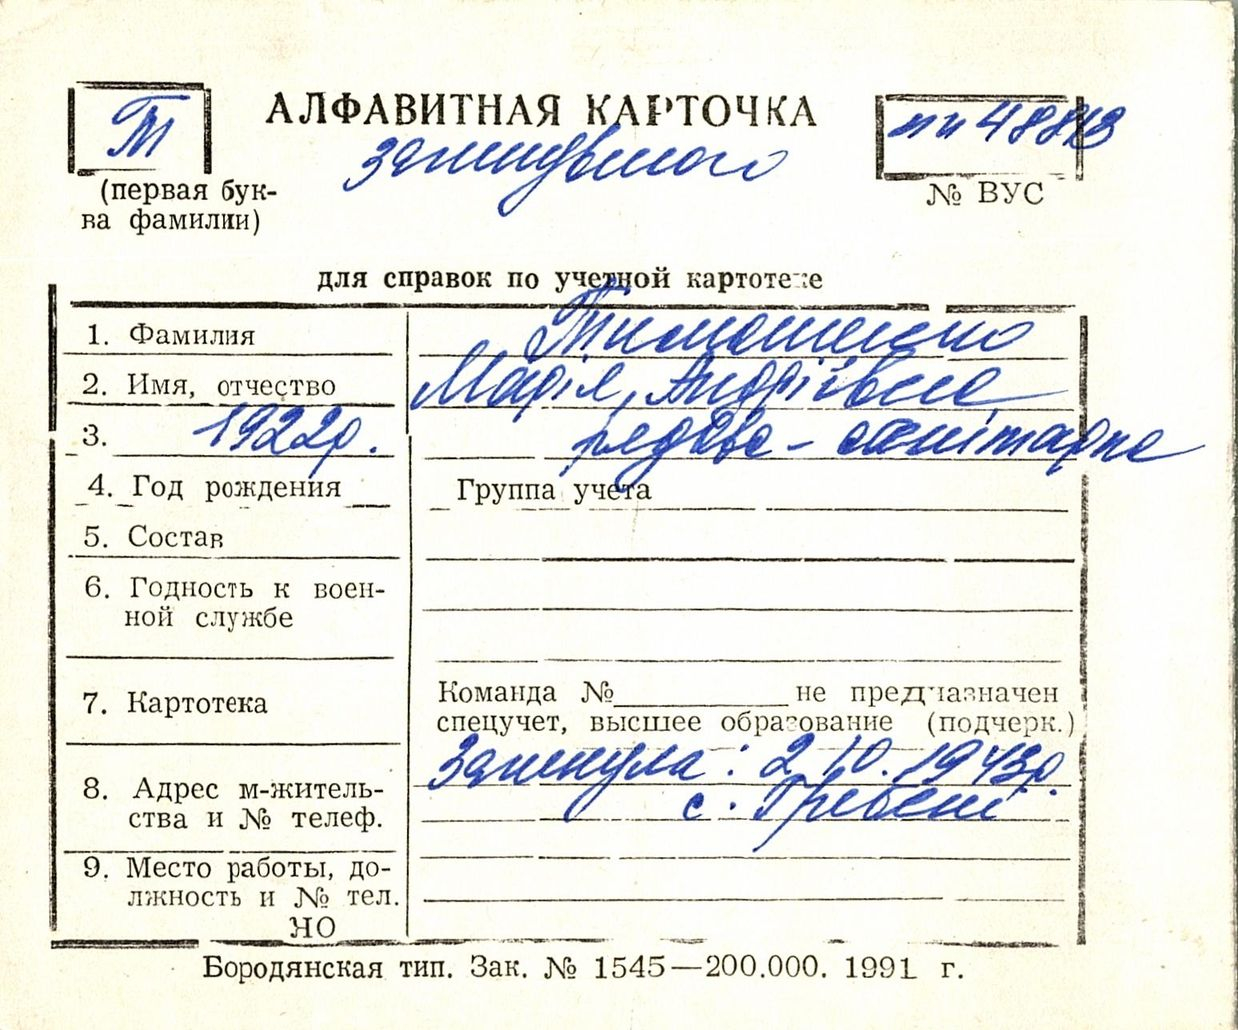 Т
АЛФАВИТНАЯ КАРТОЧКА
загинувшого
пп 48813
(первая бук-
ва фамилии)
№ ВУС
для справок по учетной картотеке
1. Фамилия Тимошенко
2. Имя, отчество Марія, Андріївна
3. 1922р. рядова - санітарка
4. Год рождения Группа учета
5. Состав
6. Годность к воен-
ной службе
7. Картотека
Команда № не предназначен
спецучет, высшее образование (подчерк.)
Загинула: 2.10.1943р.
8. Адрес м-житель-
ства и № телеф.
с. Гребені
9. Место работы, до-
лжность и № тел.
НО
Бородянская тип. Зак. № 1545—200.000. 1991 г.